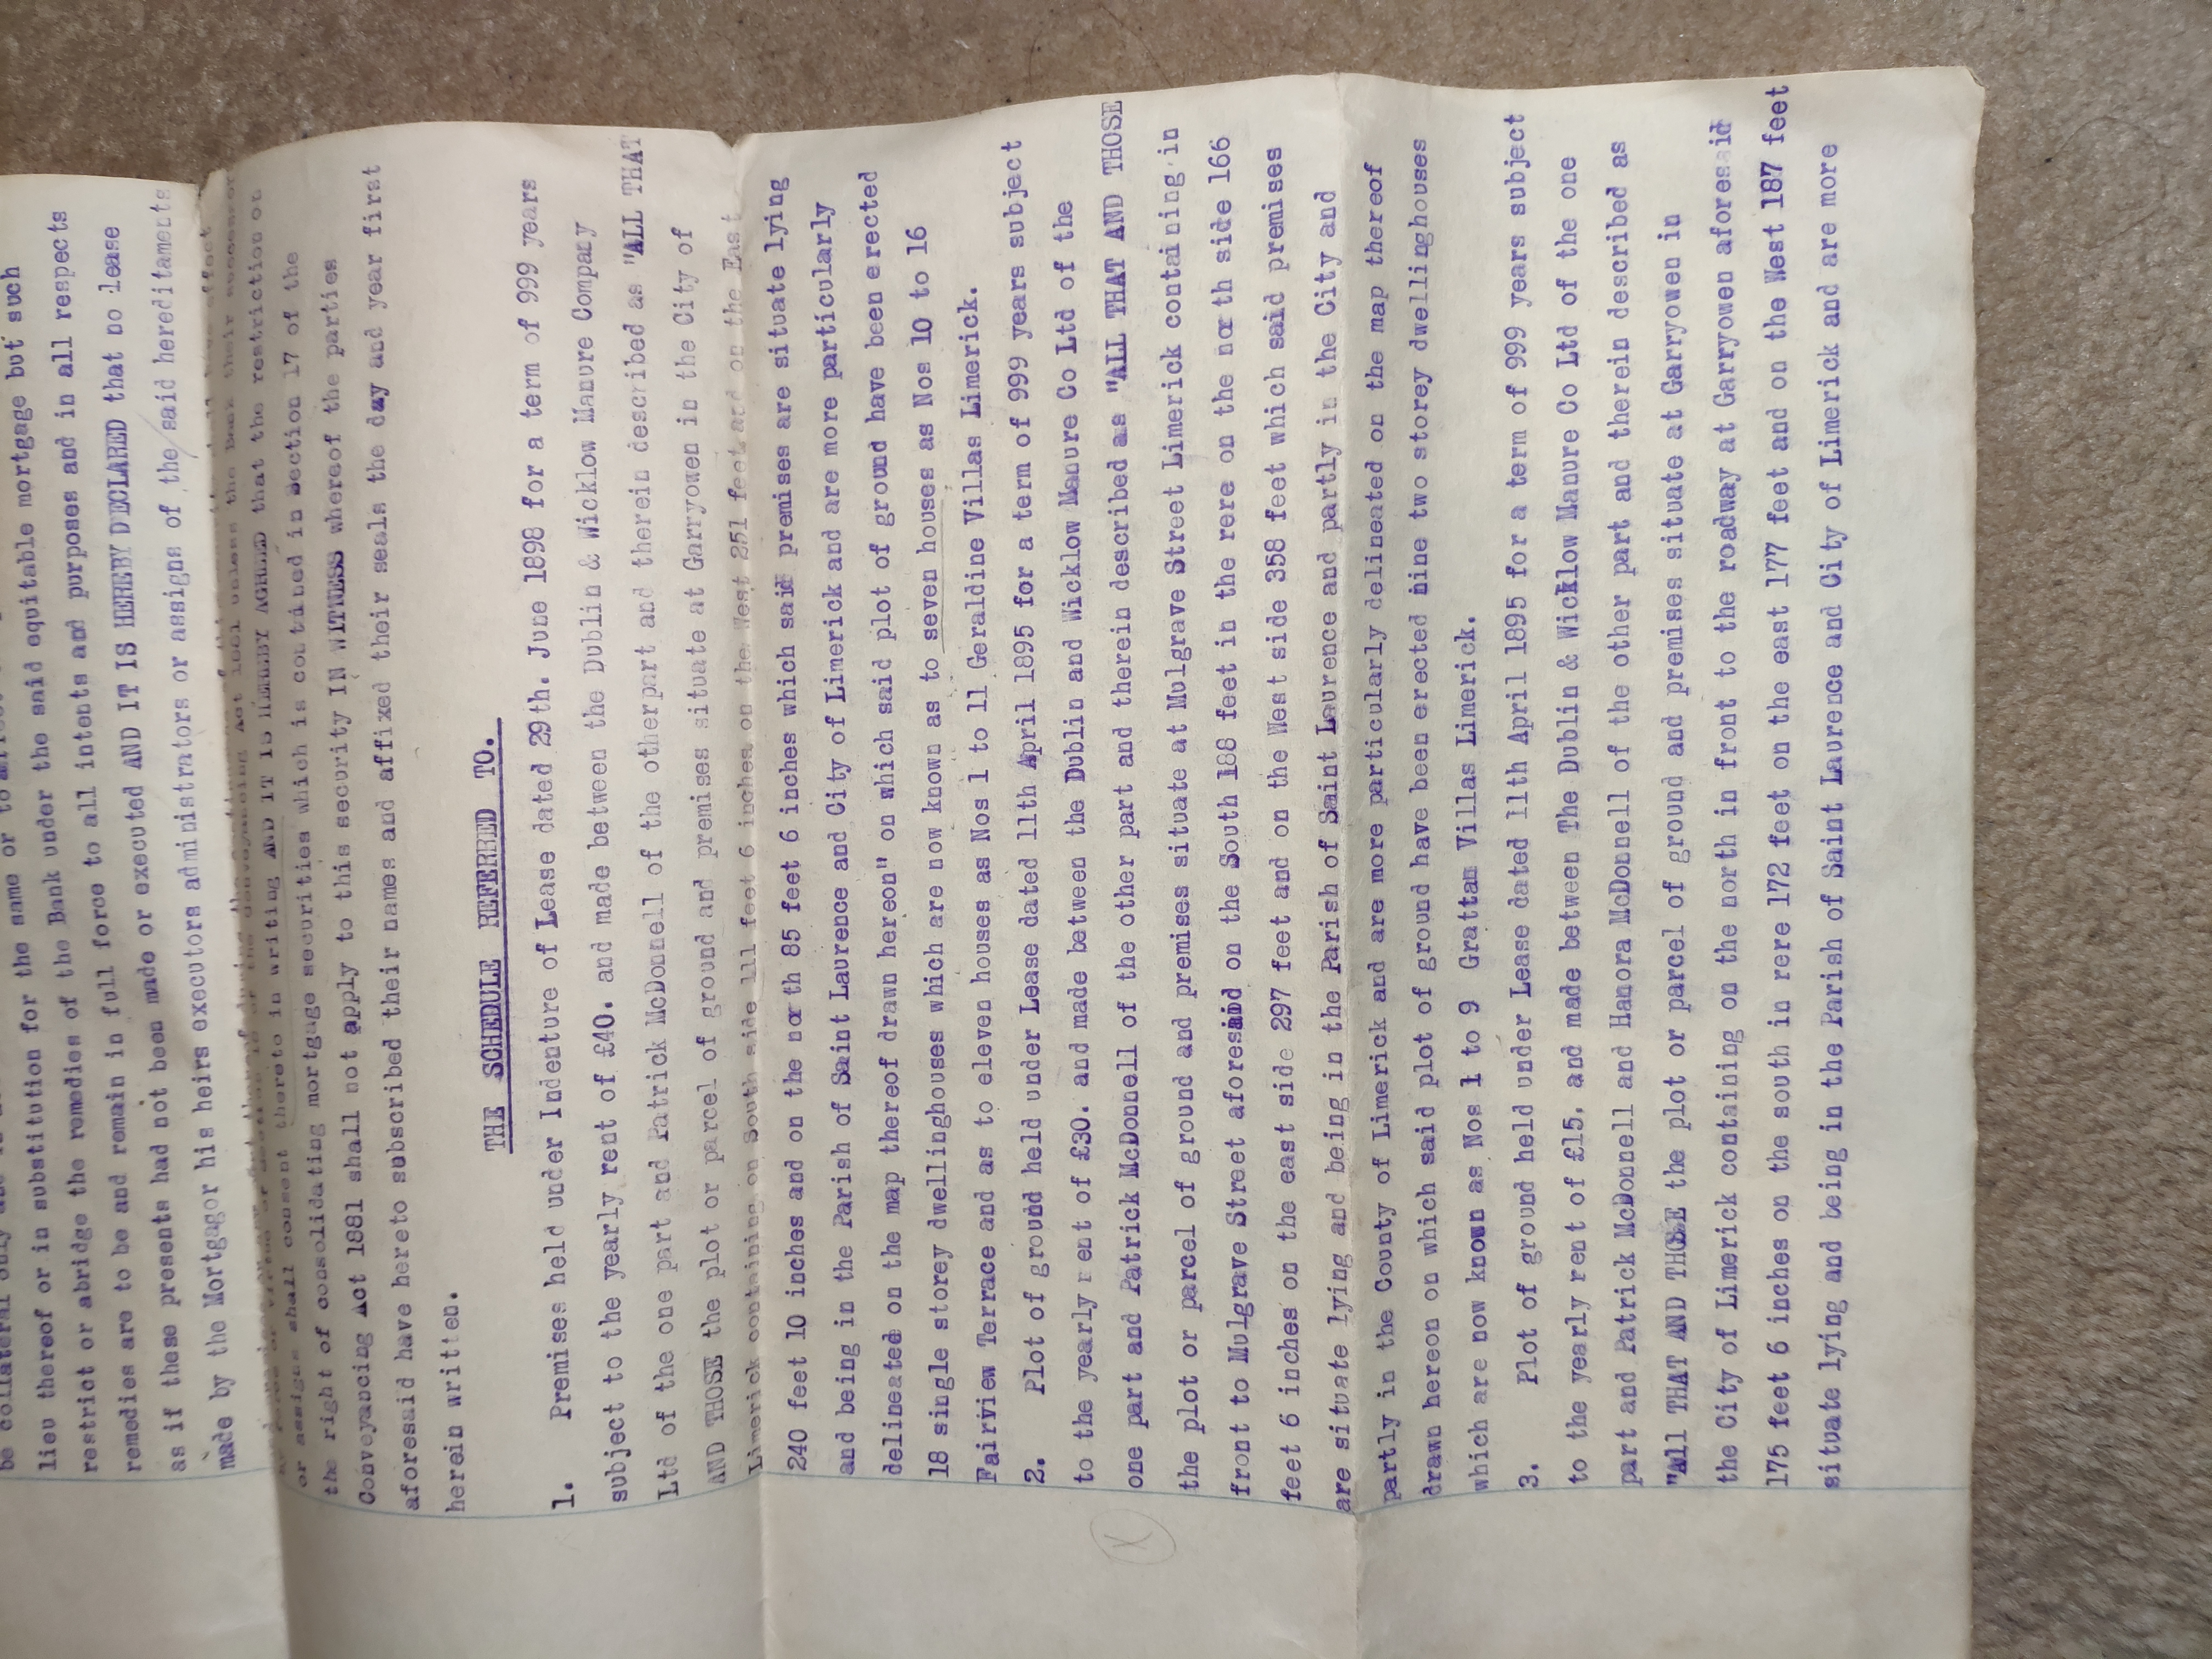 be collateral only and
lieu thereof or in substitution for the same or to
restrict or abridge the remedies of the Bank under the said equitable mortgage but such
remedies are to be and remain in full force to all intents and purposes and in all respects
as if these presents had not been made or executed AND IT IS HEREBY DECLARED that no lease
made by the Mortgagor his heirs executors administrators or assigns of the said hereditaments
or assigns shall consent thereto in writing AND IT IS HEREBY AGREED that the restriction on
the right of consolidating mortgage securities which is contained in Section 17 of the
Conveyancing Act 1881 shall not apply to this security IN WITNESS whereof the parties
aforesaid have hereto subscribed their names and affixed their seals the day and year first
herein written.
THE SCHEDULE REFERRED TO.
1. Premises held under Indenture of Lease dated 29th. June 1898 for a term of 999 years
subject to the yearly rent of £40. and made between the Dublin & Wicklow Manure Company
Ltd of the one part and Patrick McDonnell of the otherpart and therein described as "ALL THAT
AND THOSE the plot or parcel of ground and premises situate at Garryowen in the City of
Limerick containing on South side 111 feet 6 inches on the West 251 feet and on the East
240 feet 10 inches and on the north 85 feet 6 inches which said premises are situate lying
and being in the Parish of Saint Laurence and City of Limerick and are more particularly
delineated on the map thereof drawn hereon" on which said plot of ground have been erected
18 single storey dwellinghouses which are now known as to seven houses as Nos 10 to 16
Fairview Terrace and as to eleven houses as Nos 1 to 11 Geraldine Villas Limerick.
2. Plot of ground held under Lease dated 11th April 1895 for a term of 999 years subject
to the yearly rent of £30. and made between the Dublin and Wicklow Manure Co Ltd of the
one part and Patrick McDonnell of the other part and therein described as "ALL THAT AND THOSE
the plot or parcel of ground and premises situate at Mulgrave Street Limerick containing in
front to Mulgrave Street aforesaid on the South 188 feet in the rere on the north side 166
feet 6 inches on the east side 297 feet and on the West side 358 feet which said premises
are situate lying and being in the Parish of Saint Laurence and partly in the City and
partly in the County of Limerick and are more particularly delineated on the map thereof
drawn hereon on which said plot of ground have been erected nine two storey dwellinghouses
which are now known as Nos 1 to 9 Grattan Villas Limerick.
3. Plot of ground held under Lease dated 11th April 1895 for a term of 999 years subject
to the yearly rent of £15. and made between The Dublin & Wicklow Manure Co Ltd of the one
part and Patrick McDonnell and Hanora McDonnell of the other part and therein described as
"All THAT AND THOSE the plot or parcel of ground and premises situate at Garryowen in
the City of Limerick containing on the north in front to the roadway at Garryowen aforesaid
175 feet 6 inches on the south in rere 172 feet on the east 177 feet and on the West 187 feet
situate lying and being in the Parish of Saint Laurence and City of Limerick and are more
X